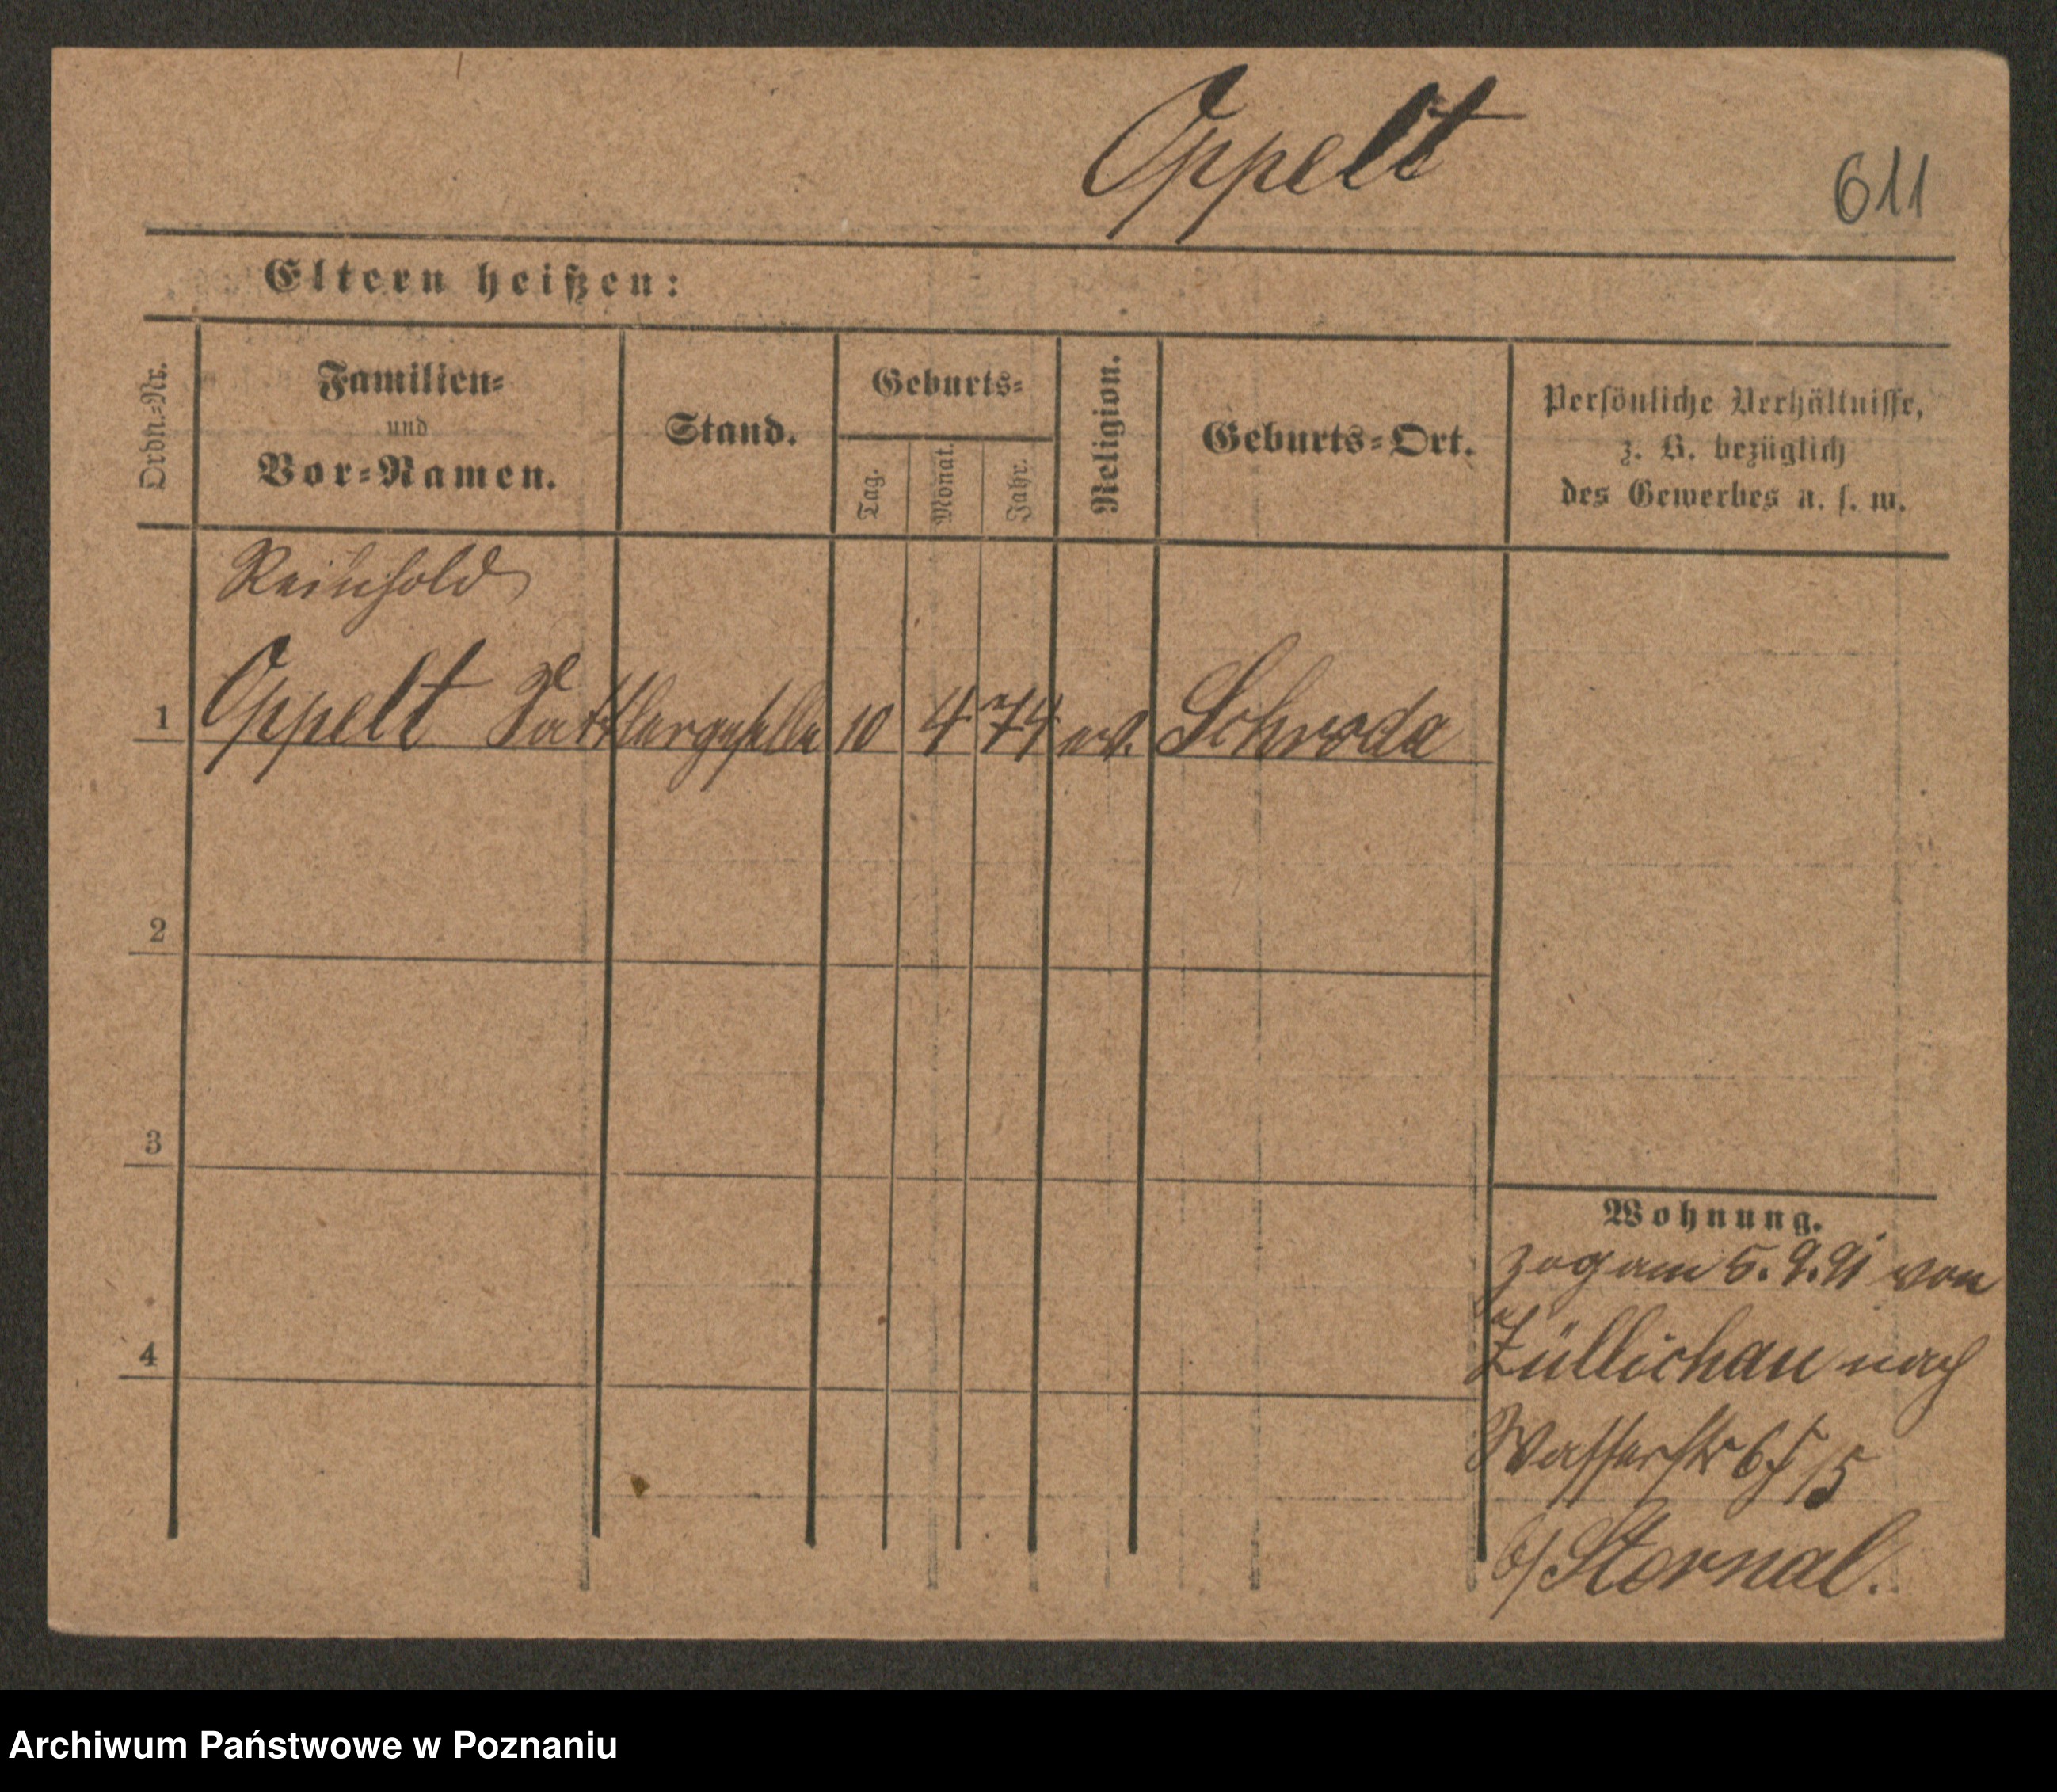 Oppelt
611
Eltern heißen:
Ordn.-Nr.
Familien-
und
Vor-Namen.
Stand.
Geburts-
Tag.
Monat.
Jahr.
Religion.
Geburts-Ort.
Persönliche Verhältnisse,
z. B. bezüglich
des Gewerbes u. s. w.
Reinhold
1 Oppelt Sattlergeselle 10 4 74 ev. Schroda
2
3
4
Wohnung.
zog am 5. 9. 91 von
Züllichau nach
Wasserstr 15
b/ Stornal.
Archiwum Państwowe w Poznaniu